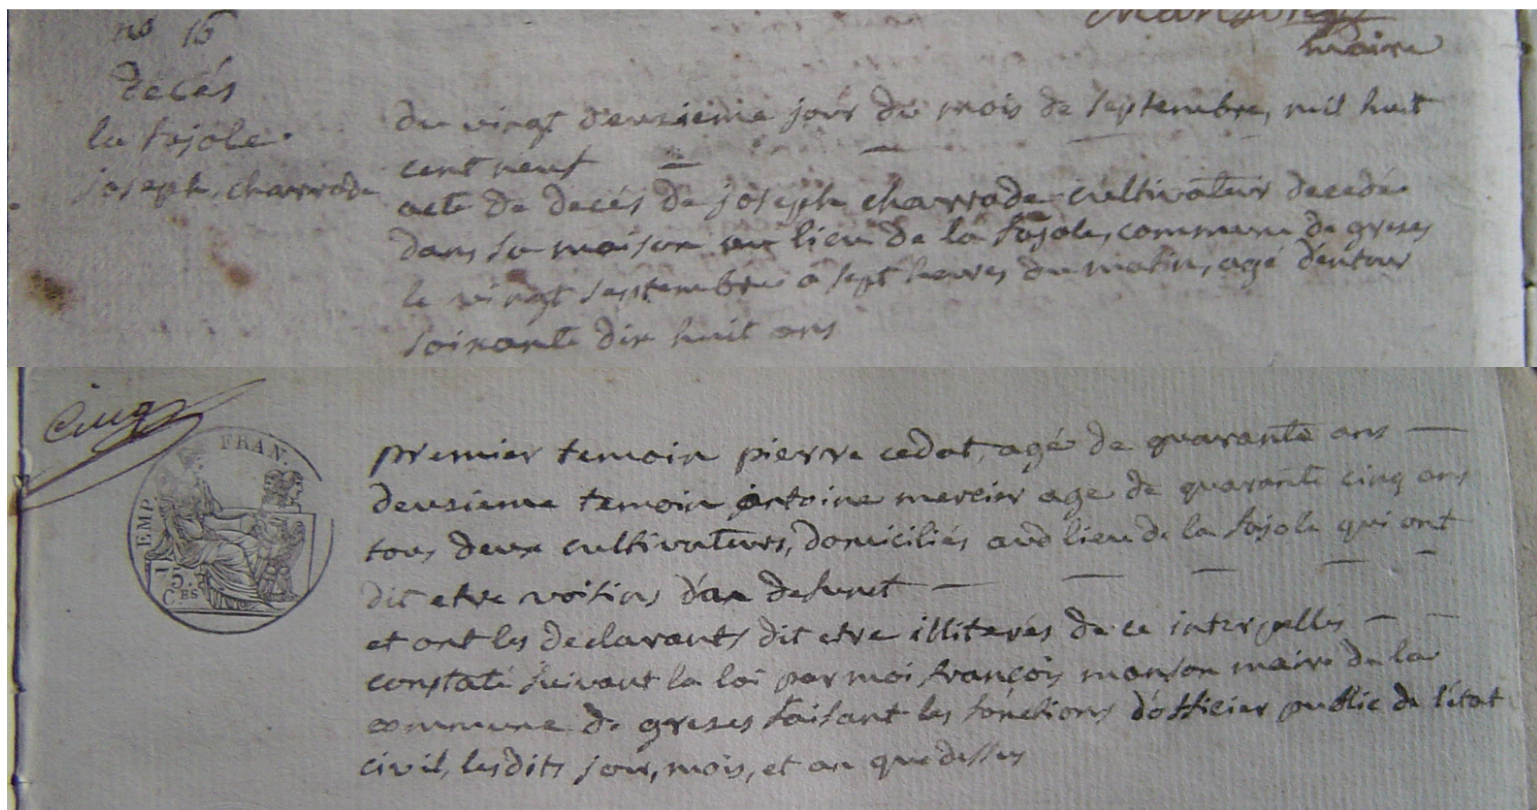 maire
no 16
decés
la fajole.
joseph charrade
du vingt deuxieme jour du mois de septembre, mil huit
cent neuf
acte de decés de joseph charrade cultivateur decedé
dans sa maison au lieu de la fajole, commune de greses
le vingt septembre a sept heures du matin, agé d'entour
soixante dix huit ans
premier temoin pierre cedat, agé de quarante ans
deuxieme temoin antoine mercier age de quarante cinq ans
tous deux cultivateurs, domiciliés aud lieu de la fajole qui ont
dit etre voisins defunct
et ont les declarants dit etre illiterés de ce interpellés
constaté suivant la loi par moi françois manson maire de la
commune de greses faisant les fonctions d'officier public de l'état
civil, lesdits jour, mois, et an que dessus
EMP. FRAN.
75.
C.ES